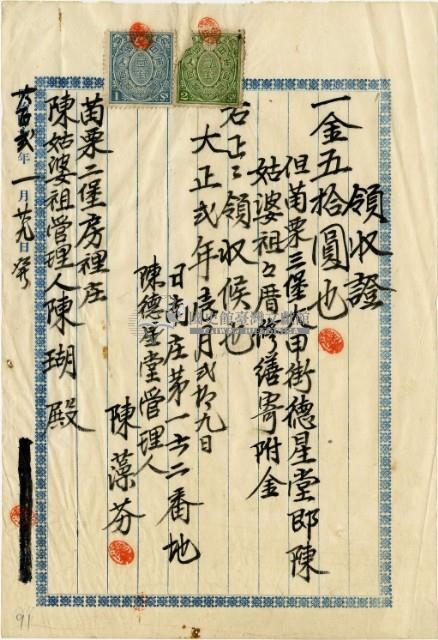 領收證
一金五拾圓也
但苗栗三堡大甲街德星堂即陳
姑婆祖之厝修繕寄附金
右正ニ領収候也
大正貳年壹月貳拾九日
日南庄第一六二番地
陳德星堂管理人
陳藻芬
苗栗二堡房裡庄
陳姑婆祖管理人陳瑚殿
年一月廿九日
1
2
91